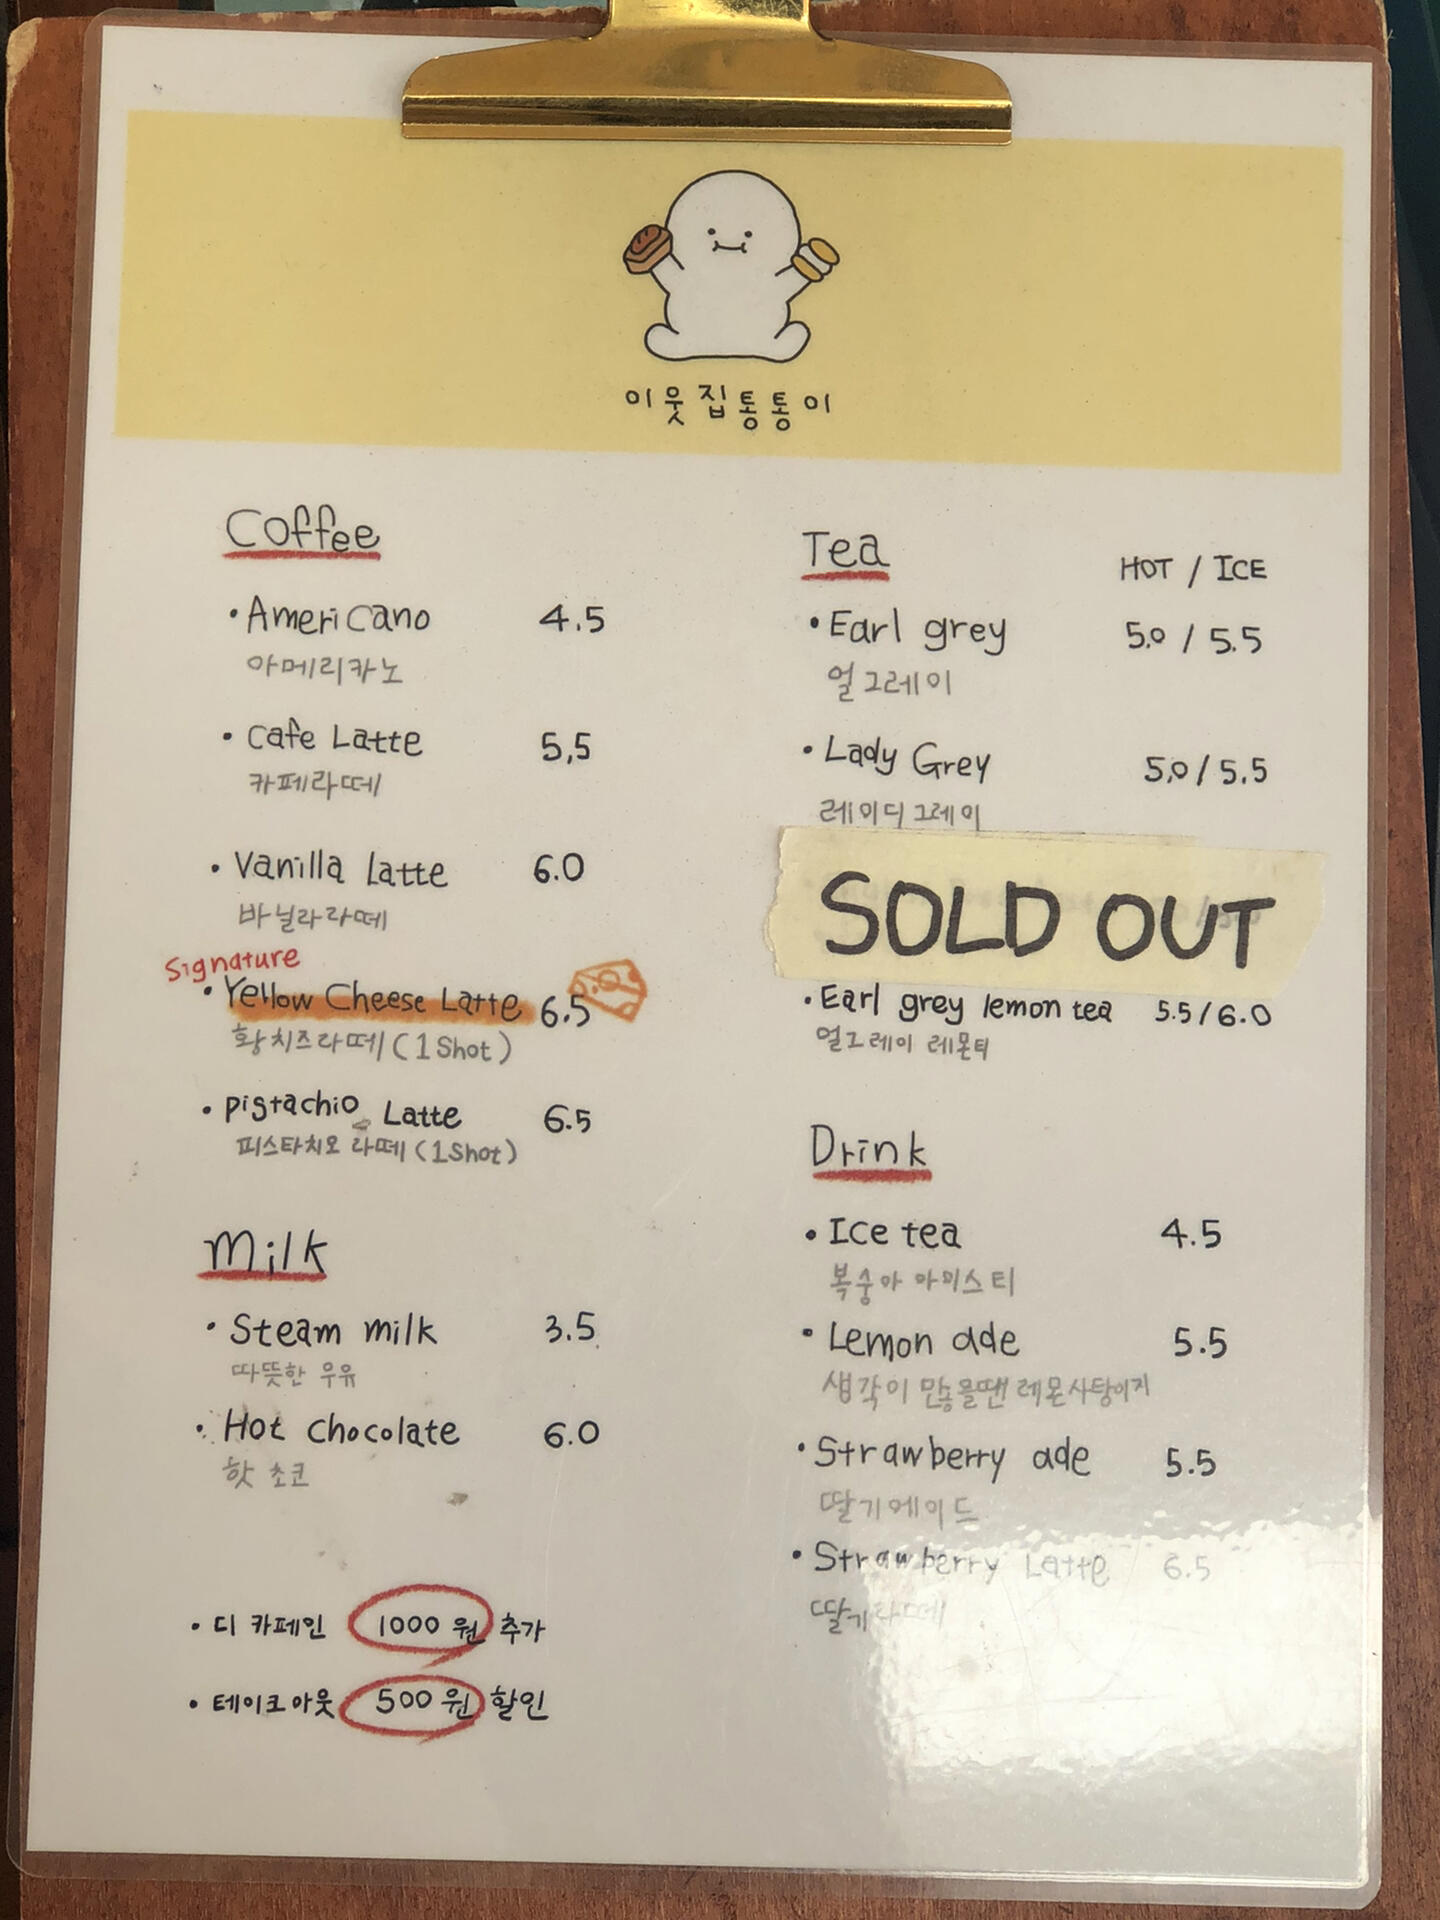 이웃집통통이
Coffee
• Americano 4.5
아메리카노
• Cafe Latte 5,5
카페라떼
• Vanilla Latte 6.0
바닐라라떼
Signature
• Yellow Cheese Latte 6.5
황치즈라떼 (1 Shot)
• Pistachio Latte 6.5
피스타치오 라떼 (1 Shot)
Milk
• Steam milk 3.5
따뜻한 우유
• Hot Chocolate 6.0
핫 초코
• 디 카페인 1000 원 추가
• 테이크아웃 500 원 할인
Tea HOT / ICE
• Earl grey 5.0 / 5.5
얼그레이
• Lady Grey 5.0 / 5.5
레이디그레이
SOLD OUT
• Earl grey lemon tea 5.5 / 6.0
얼그레이 레몬티
Drink
• Ice tea 4.5
복숭아 아이스티
• Lemon ade 5.5
생각이 많을땐 레몬사탕이지
• Strawberry ade 5.5
딸기에이드
• Strawberry Latte 6.5
딸기라떼